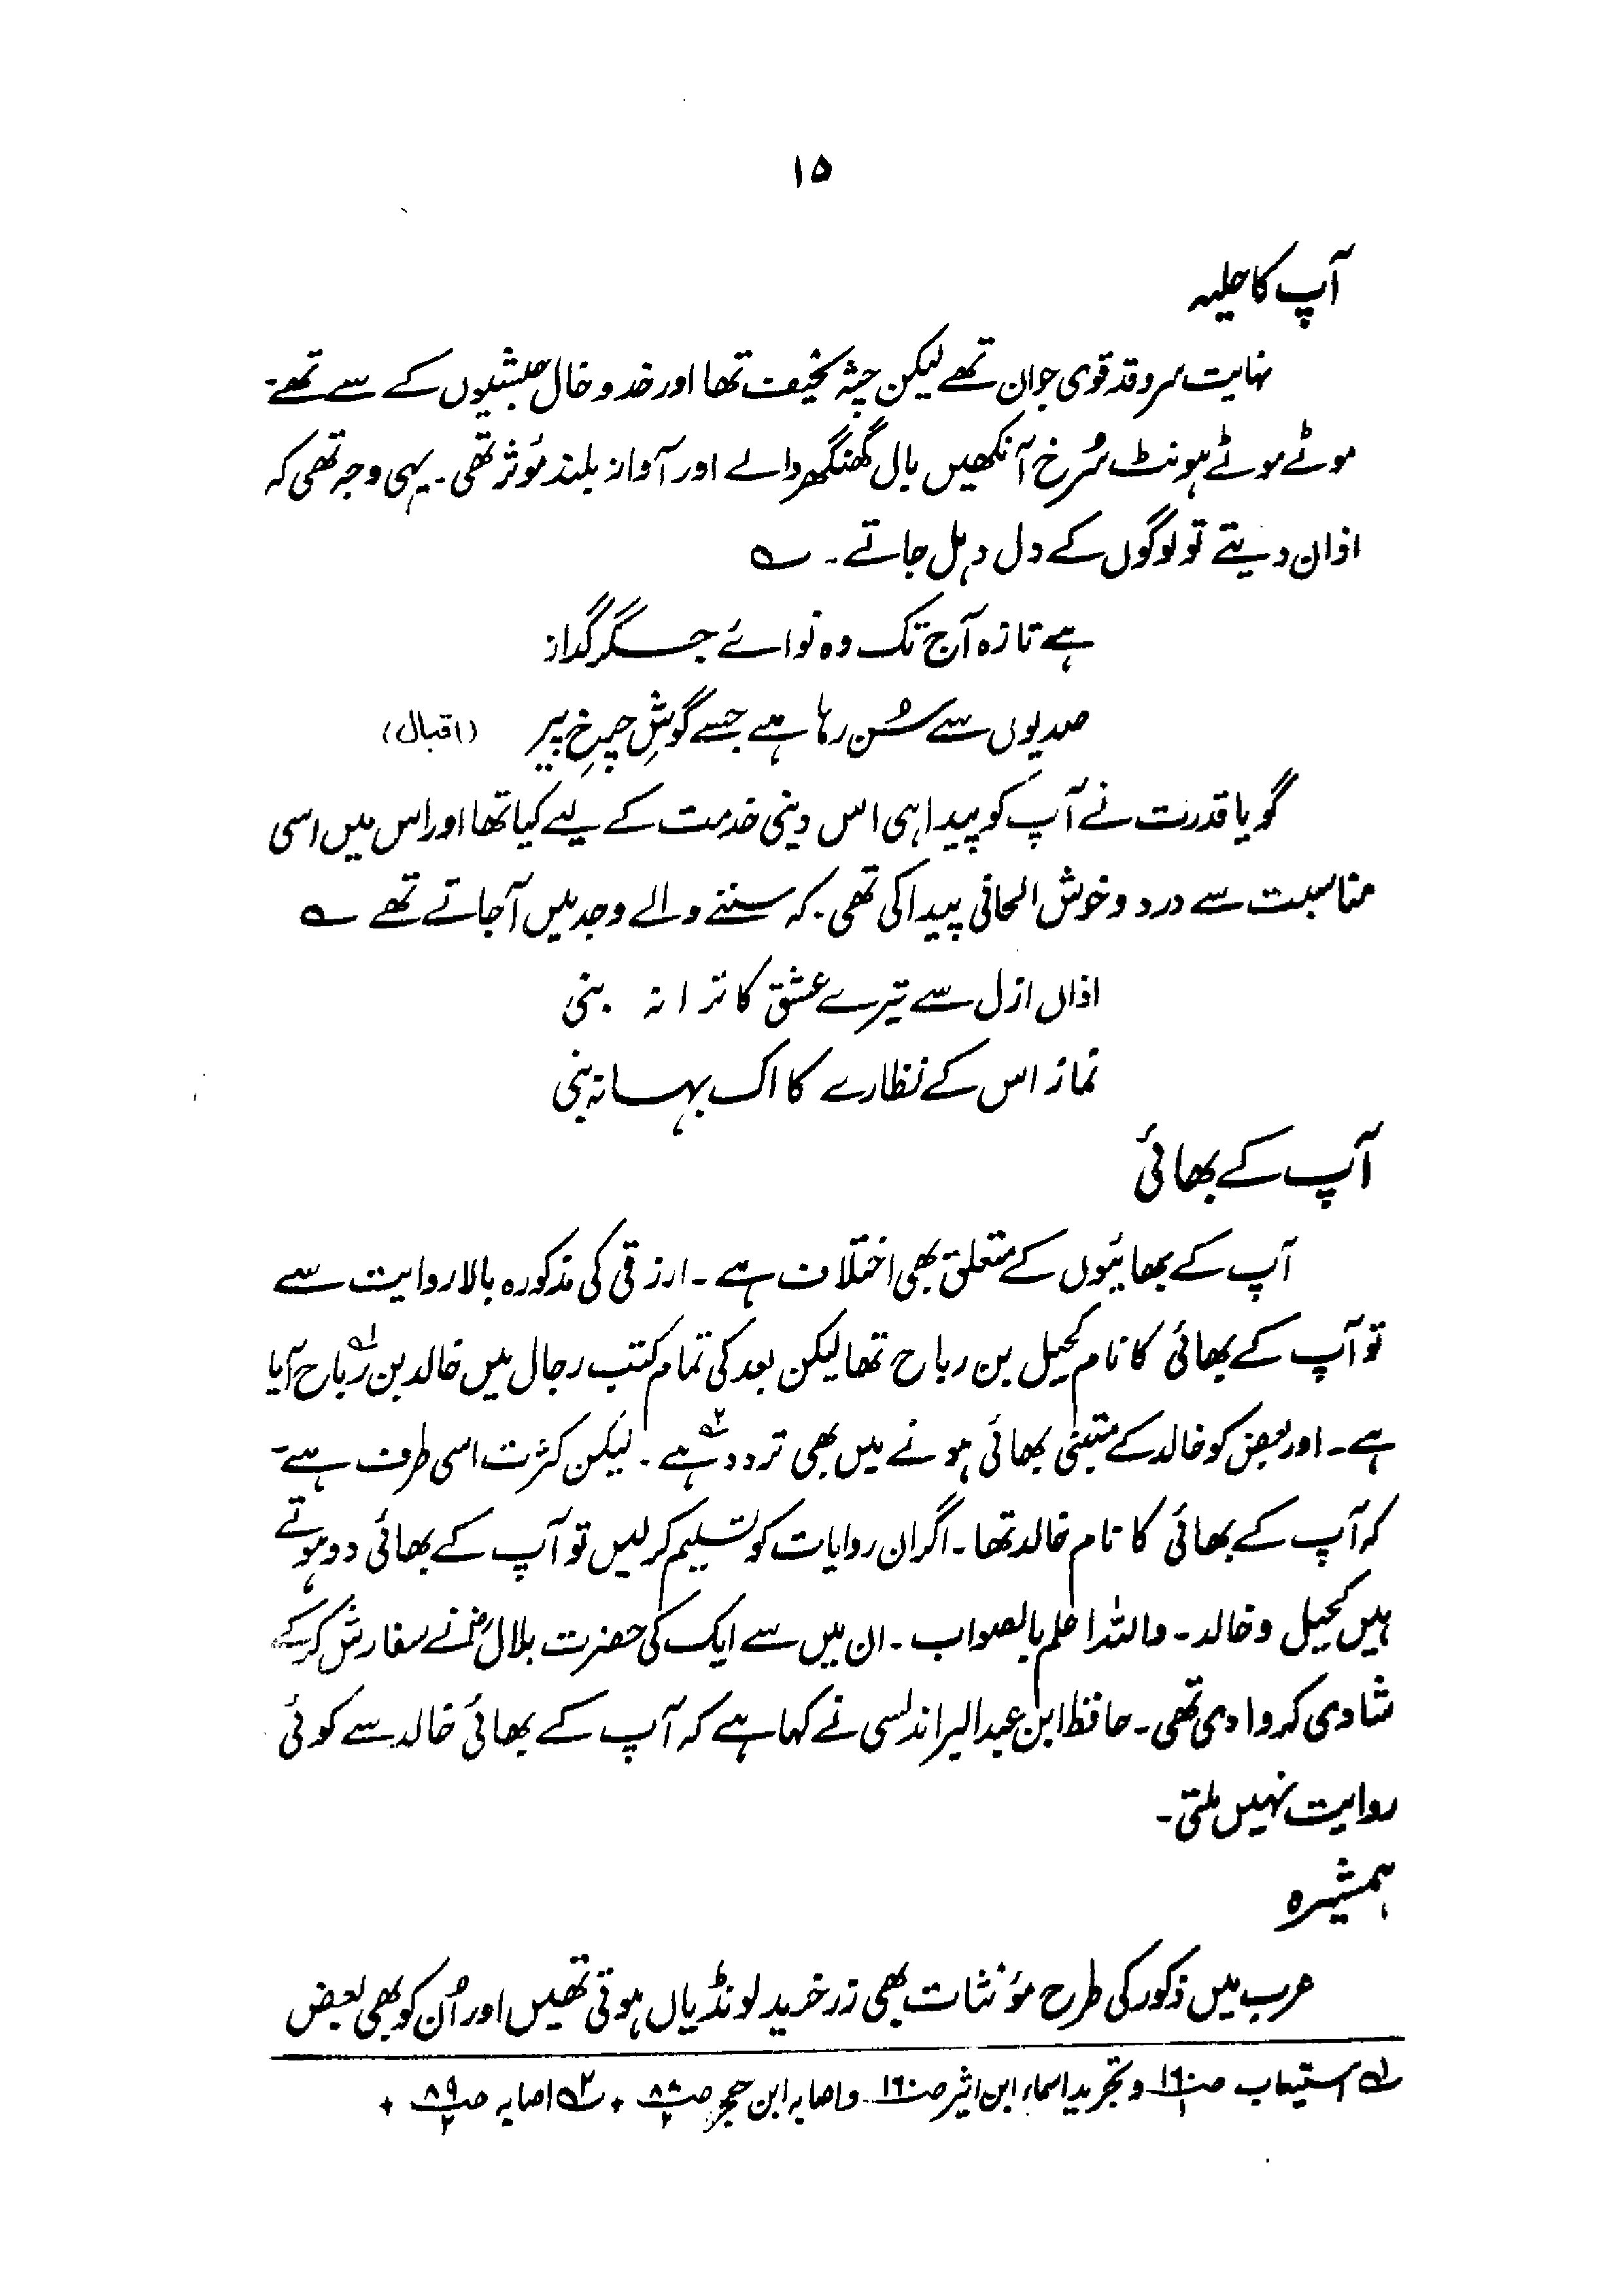 ۱۵
آپ کا حلیہ
نہایت سروقد قوی جوان تھے لیکن جثہ نحیف تھا اور خدوخال حبشیوں کے سے تھے۔
موٹے موٹے ہونٹ سُرخ آنکھیں بال گھنگھر والے اور آواز بلند مؤثر تھی۔ یہی وجہ تھی کہ
اذان دیتے تو لوگوں کے دل دہل جاتے۔ ؎
ہے تازہ آج تک وہ نوائے جگر گداز
صدیوں سے سُن رہا ہے جسے گوشِ چرخِ پیر (اقبال)
گویا قدرت نے آپ کو پیدا ہی اس دینی خدمت کے لیے کیا تھا اور اس میں اسی
مناسبت سے درد و خوش الحانی پیدا کی تھی۔ کہ سننے والے وجد میں آجاتے تھے ؎
اذاں ازل سے تیرے عشق کا ترانہ بنی
نماز اس کے نظارے کا اک بہانہ بنی
آپ کے بھائی
آپ کے بھائیوں کے متعلق بھی اختلاف ہے۔ ارزقی کی مذکورہ بالا روایت سے
تو آپ کے بھائی کا نام کحیل بن رباح تھا لیکن بعد کی تمام کتب رجال میں خالد بن رباح ۱؎ آیا
ہے۔ اور بعض کو خالد کے متبنٰی بھائی ہونے میں بھی تردد ۲؎ ہے۔ لیکن کثرت اسی طرف ہے۔
کہ آپ کے بھائی کا نام خالد تھا۔ اگر ان روایات کو تسلیم کرلیں تو آپ کے بھائی دو ہوتے
ہیں کحیل و خالد۔ واللہ اعلم بالصواب۔ ان میں سے ایک کی حضرت بلالؓ نے سفارش کرکے
شادی کروا دی تھی۔ حافظ ابن عبدالبر اندلسی نے کہا ہے کہ آپ کے بھائی خالد سے کوئی
روایت نہیں ملتی۔
ہمشیرہ
عرب میں ذکور کی طرح مؤنثات بھی زرخرید لونڈیاں ہوتی تھیں اور اُن کو بھی بعض
۱؎ استیعاب صـ۱۶۰/۱ و تجرید اسماء ابن اثیر صـ۱۶۰ و اصابہ ابن حجر صـ۸۶/۲ + ۲؎ اصابہ صـ۸۹/۲ +